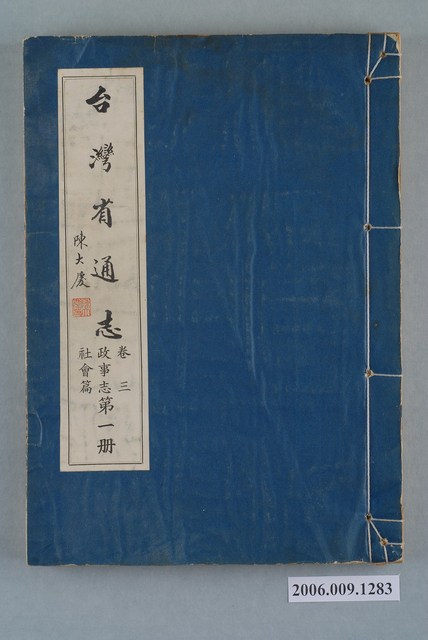 台灣省通志
陳大慶
卷三
政事志
社會篇
第一册
2006.009.1283